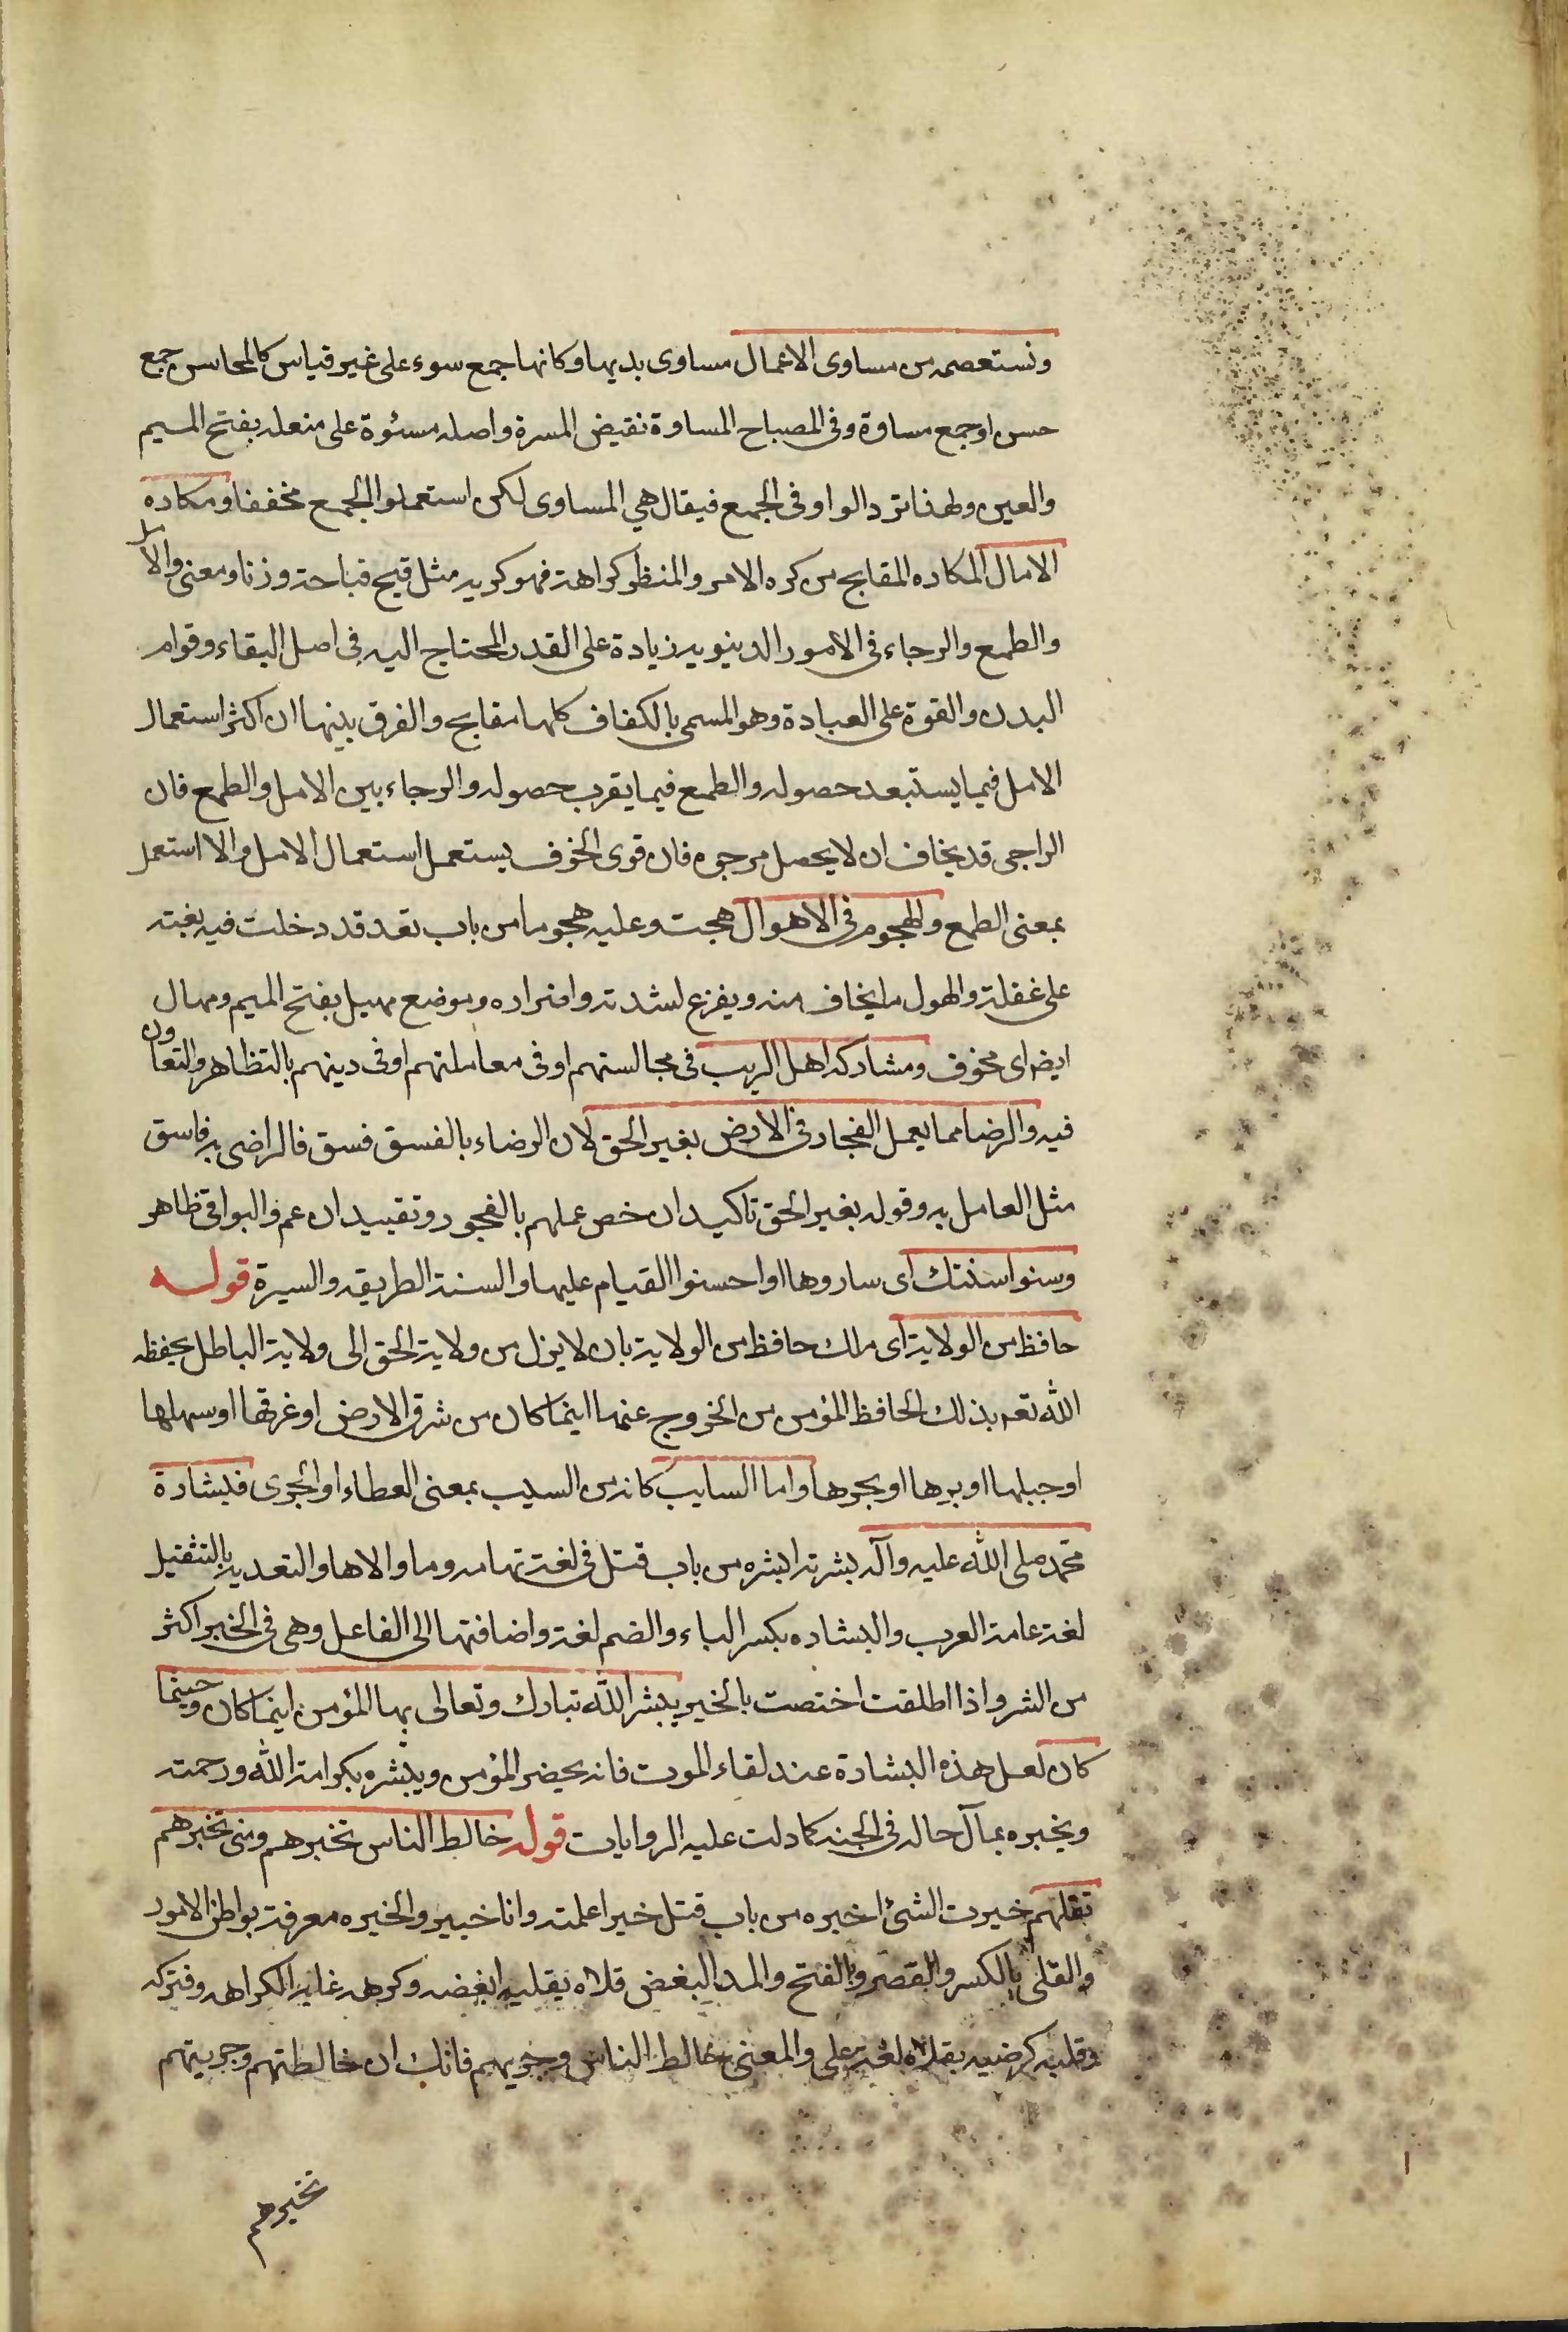 ونستعصمه من مساوی الاعمال مساوی بدیها وکانها جمع سوء علی غیر قیاس کالمحاسن جمع
حسن او جمع مساوة وفی المصباح المساوة نقیض المسرة واصله مسئوة علی مفعله بفتح المیم
والعین ولهذا ترد الواو فی الجمع فیقال هی المساوی لکن استعملوا الجمع مخففا ومکاره
الامال المکاره المقابح من کره الامر والمنظر کراهة فهو کریه مثل قبح قباحة وزنا ومعنی والامل
والطمع والرجاء فی الامور الدینویه زیادة علی القدر المحتاج الیه فی اصل البقاء وقوام
البدن والقوة علی العبادة وهو المسمی بالکفاف کلها مقابح والفرق بینها ان اکثر استعمال
الامل فیما یستبعد حصوله والطمع فیما یقرب حصوله والرجاء بین الامل والطمع فان
الراجی قد یخاف ان لا یحصل مرجوه فان قوی الخوف یستعمل استعمال الامل والا استعمل
بمعنی الطمع والهجوم فی الاهوال هجمت وعلیه هجوما من باب تعد قد دخلت فیه بغتة
علی غفلة والهول ما یخاف منه ویفزع لشدته وافراده وموضع مهیل بفتح المیم ومهال
ایض ای مخوف ومشارکة اهل الریب فی مجالستهم او فی معاملتهم او فی دینهم بالتظاهر والتعاون
فیه والرضا مما یعمل الفجار فی الارض بغیر الحق لان الرضاء بالفسق فسق فالراضی به فاسق
مثل العامل به وقوله بغیر الحق تاکید ان خص عملهم بالفجور وتقیید ان عم والبواقی ظاهر
وسنوا سنتک ای ساروها او احسنوا القیام علیها والسنة الطریقه والسیرة قوله
حافظ من الولایة ای ملک حافظ من الولایة بان لا یزل من ولایة الحق الی ولایة الباطل یحفظ
الله تعه بذلک الحافظ المؤمن من الخروج عنها اینما کان من شرق الارض او غربها او سهلها
او جبلها او برها او بحرها واما السایب کانه من السیب بمعنی العطاء او الجری فبشارة
محمد صلی الله علیه وآله بشرته ابشره من باب قتل فی لغة تهامه وما والاها والتعدیة بالتثقیل
لغة عامة العرب والبشاره بکسر الباء والضم لغة واضافتها الی الفاعل وهی فی الخیر اکثر
من الشر واذا اطلقت اختصت بالخیر یبشر الله تبارک وتعالی بها المؤمن اینما کان وحیثما
کان لعل هذه البشارة عند لقاء الموت فانه یحضر المؤمن ویبشره بکرامة الله ورحمته
ویخبره بمآل حاله فی الجنه کما دلت علیه الروایات قوله خالط الناس تخبرهم ومتی تخبرهم
تقلهم خبرت الشئ اخبره من باب قتل خبرا علمته وانا خبیر والخبره معرفة بواطن الامور
والقلی بالکسر والقصر وبالفتح والمد البغض قلاه یقلیه ابغضه وکرهه غایة الکراهه وفترکه
وقلیه کرضیه یقلاه لغة علی والمعنی خالط الناس وجربهم فانک ان خالطتهم وجربتهم
تخبرهم